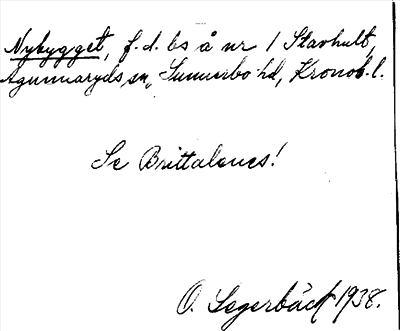 Nybygget, f.d. bs å nr 1 Stavhult,
Agunnaryds sn, Sunnerbo hd, Kronob. l.
Se Brittalenes!
O. Segerbäck 1938.